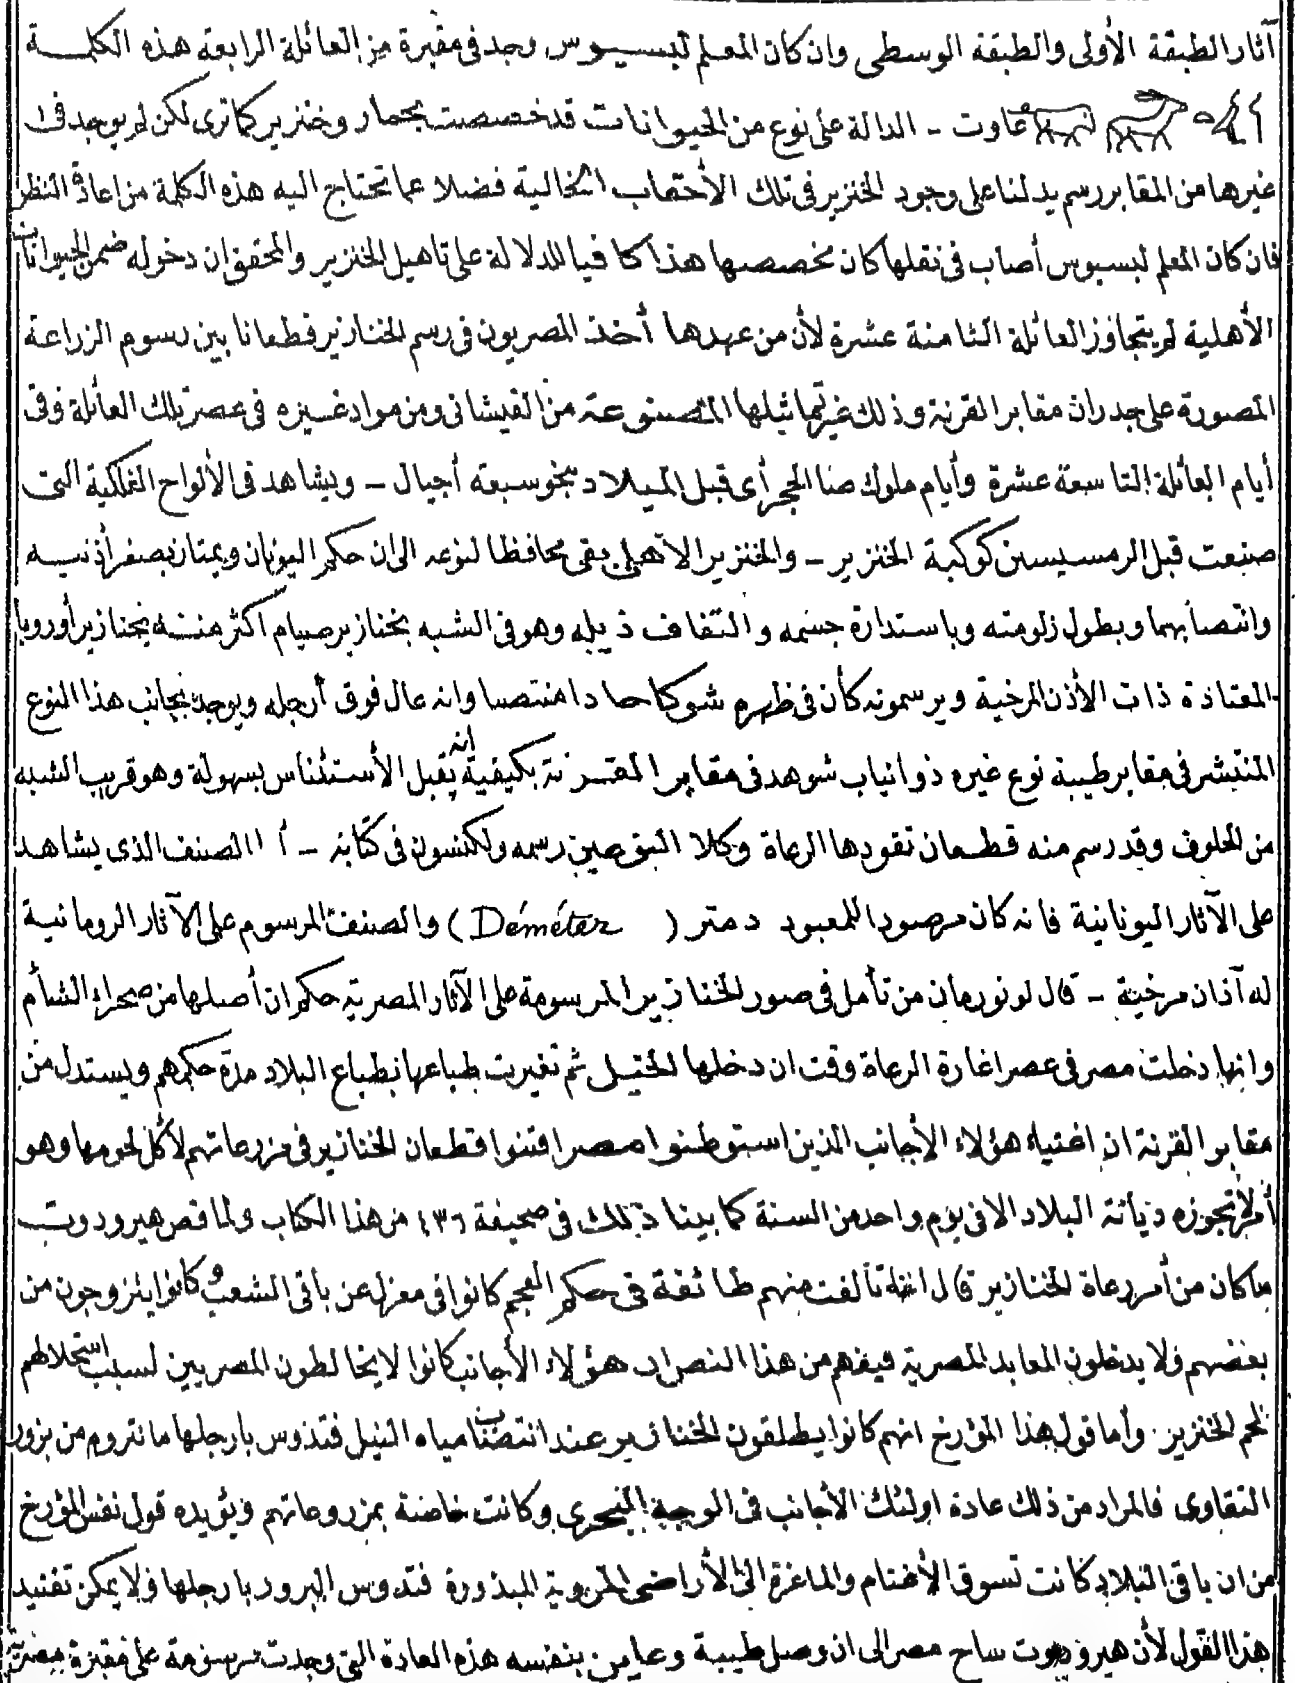 آثار الطبقة الأولى والطبقة الوسطى وان كان المعلم لبسيوس وجد فى مقبرة من العائلة الرابعة هذه الكلمة
عاوت - الدالة على نوع من الحيوانات قد خصصت بحمار وخنزير كما ترى لكن لم يوجد فى
غيرها من المقابر رسم يدلنا على وجود الخنزير فى تلك الأحقاب الخالية فضلا عما تحتاج اليه هذه الكلمة من اعادة النظر
فان كان المعلم لبسيوس أصاب فى نقلها كان مخصصها هذا كافيا للدلالة على تاهيل الخنزير والمحقق ان دخوله ضمن الحيوانات
الأهلية لم يتجاوز العائلة الثامنة عشرة لأن من عهدها أخذ المصريون فى رسم الخنازير قطعانا بين رسوم الزراعة
المصورة على جدران مقابر القرنة وذلك غير تماثيلها المصنوعة من القيشانى ومن مواد غيره فى عصر تلك العائلة وفى
أيام العائلة التاسعة عشرة وأيام ملوك صا الحجر أى قبل الميلاد بنحو سبعة أجيال - ويشاهد فى الألواح الفلكية التى
صنعت قبل الرمسيسين كوكبة الخنزير - والخنزير الأهلى بقى محافظا لنوعه الى ان حكم اليونان ويمتاز بصغر أذنيه
وانتصابهما وبطول زلومته وباستدارة جسمه والتفاف ذيله وهو فى الشبه بخنازير صيام اكثر منه بخنازير أوروبا
المعتادة ذات الأذن المرخية ويرسمونه كأن فى ظهره شوكا حادا منتصبا وانه عال فوق أرجله ويوجد بجانب هذا النوع
المنتشر فى مقابر طيبة نوع غيره ذو انياب شوهد فى مقابر القرنة بكيفية انه يقبل الأستئناس بسهولة وهو قريب الشبه
من الحلوف وقد رسم منه قطعان تقودها الرعاة وكلا النوعين رسمه ولكنسون فى كتابه - أما الصنف الذى يشاهد
على الآثار اليونانية فانه كان مرصودا للمعبود دمتر (Déméter) والصنف المرسوم على الآثار الرومانية
له آذان مرخية - قال لونورمان من تأمل فى صور الخنازير المرسومة على الآثار المصرية حكم ان أصلها من صحراء الشأم
وانها دخلت مصر فى عصر اغارة الرعاة وقت ان دخلها الخيل ثم تغيرت طباعها بطباع البلاد مدة حكمهم ويستدل من
مقابر القرنة ان اغنياء هؤلاء الأجانب الذين استوطنوا مصر اقتنوا قطعان الخنازير فى مزرعاتهم لأكل لحومها وهو
أمر لا تجوزه ديأنة البلاد الا فى يوم واحد من السنة كما بينا ذلك فى صحيفة ٤٣٦ من هذا الكتاب ولما قص هيرودوت
ما كان من أمر رعاة الخنازير قال انه تألفت منهم طائفة فى حكم العجم كانوا فى معزل عن باقى الشعب وكانوا يتزوجون من
بعضهم ولا يدخلون المعابد المصرية فيفهم من هذا النص ان هؤلاء الأجانب كانوا لا يخالطون المصريين لسبب استحلالهم
لحم الخنزير. وأما قول هذا المؤرخ انهم كانوا يطلقون الخنازير عند انتضاب مياه النيل فتدوس بارجلها ما نتروم من بزور
التقاوى فالمراد من ذلك عادة اولئك الأجانب فى الوجه البحرى وكانت خاصة بمزروعاتهم ويؤيده قول نفس المؤرخ
من ان باقى البلاد كانت تسوق الأغنام والماعز الى الأراضى المروية المبذورة فتدوس البرور بارجلها ولا يمكن تفنيد
هذا القول لأن هيرودوت ساح مصر الى ان وصل طيبة وعاين بنفسه هذه العادة التى وجدت مرسومة على مقبرة بمصر